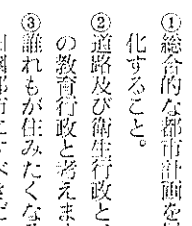 ①総合的な都市計画を
化すること。
②道路及び衛生行政と
の教育行政と考えま
③誰れもが住みたくな